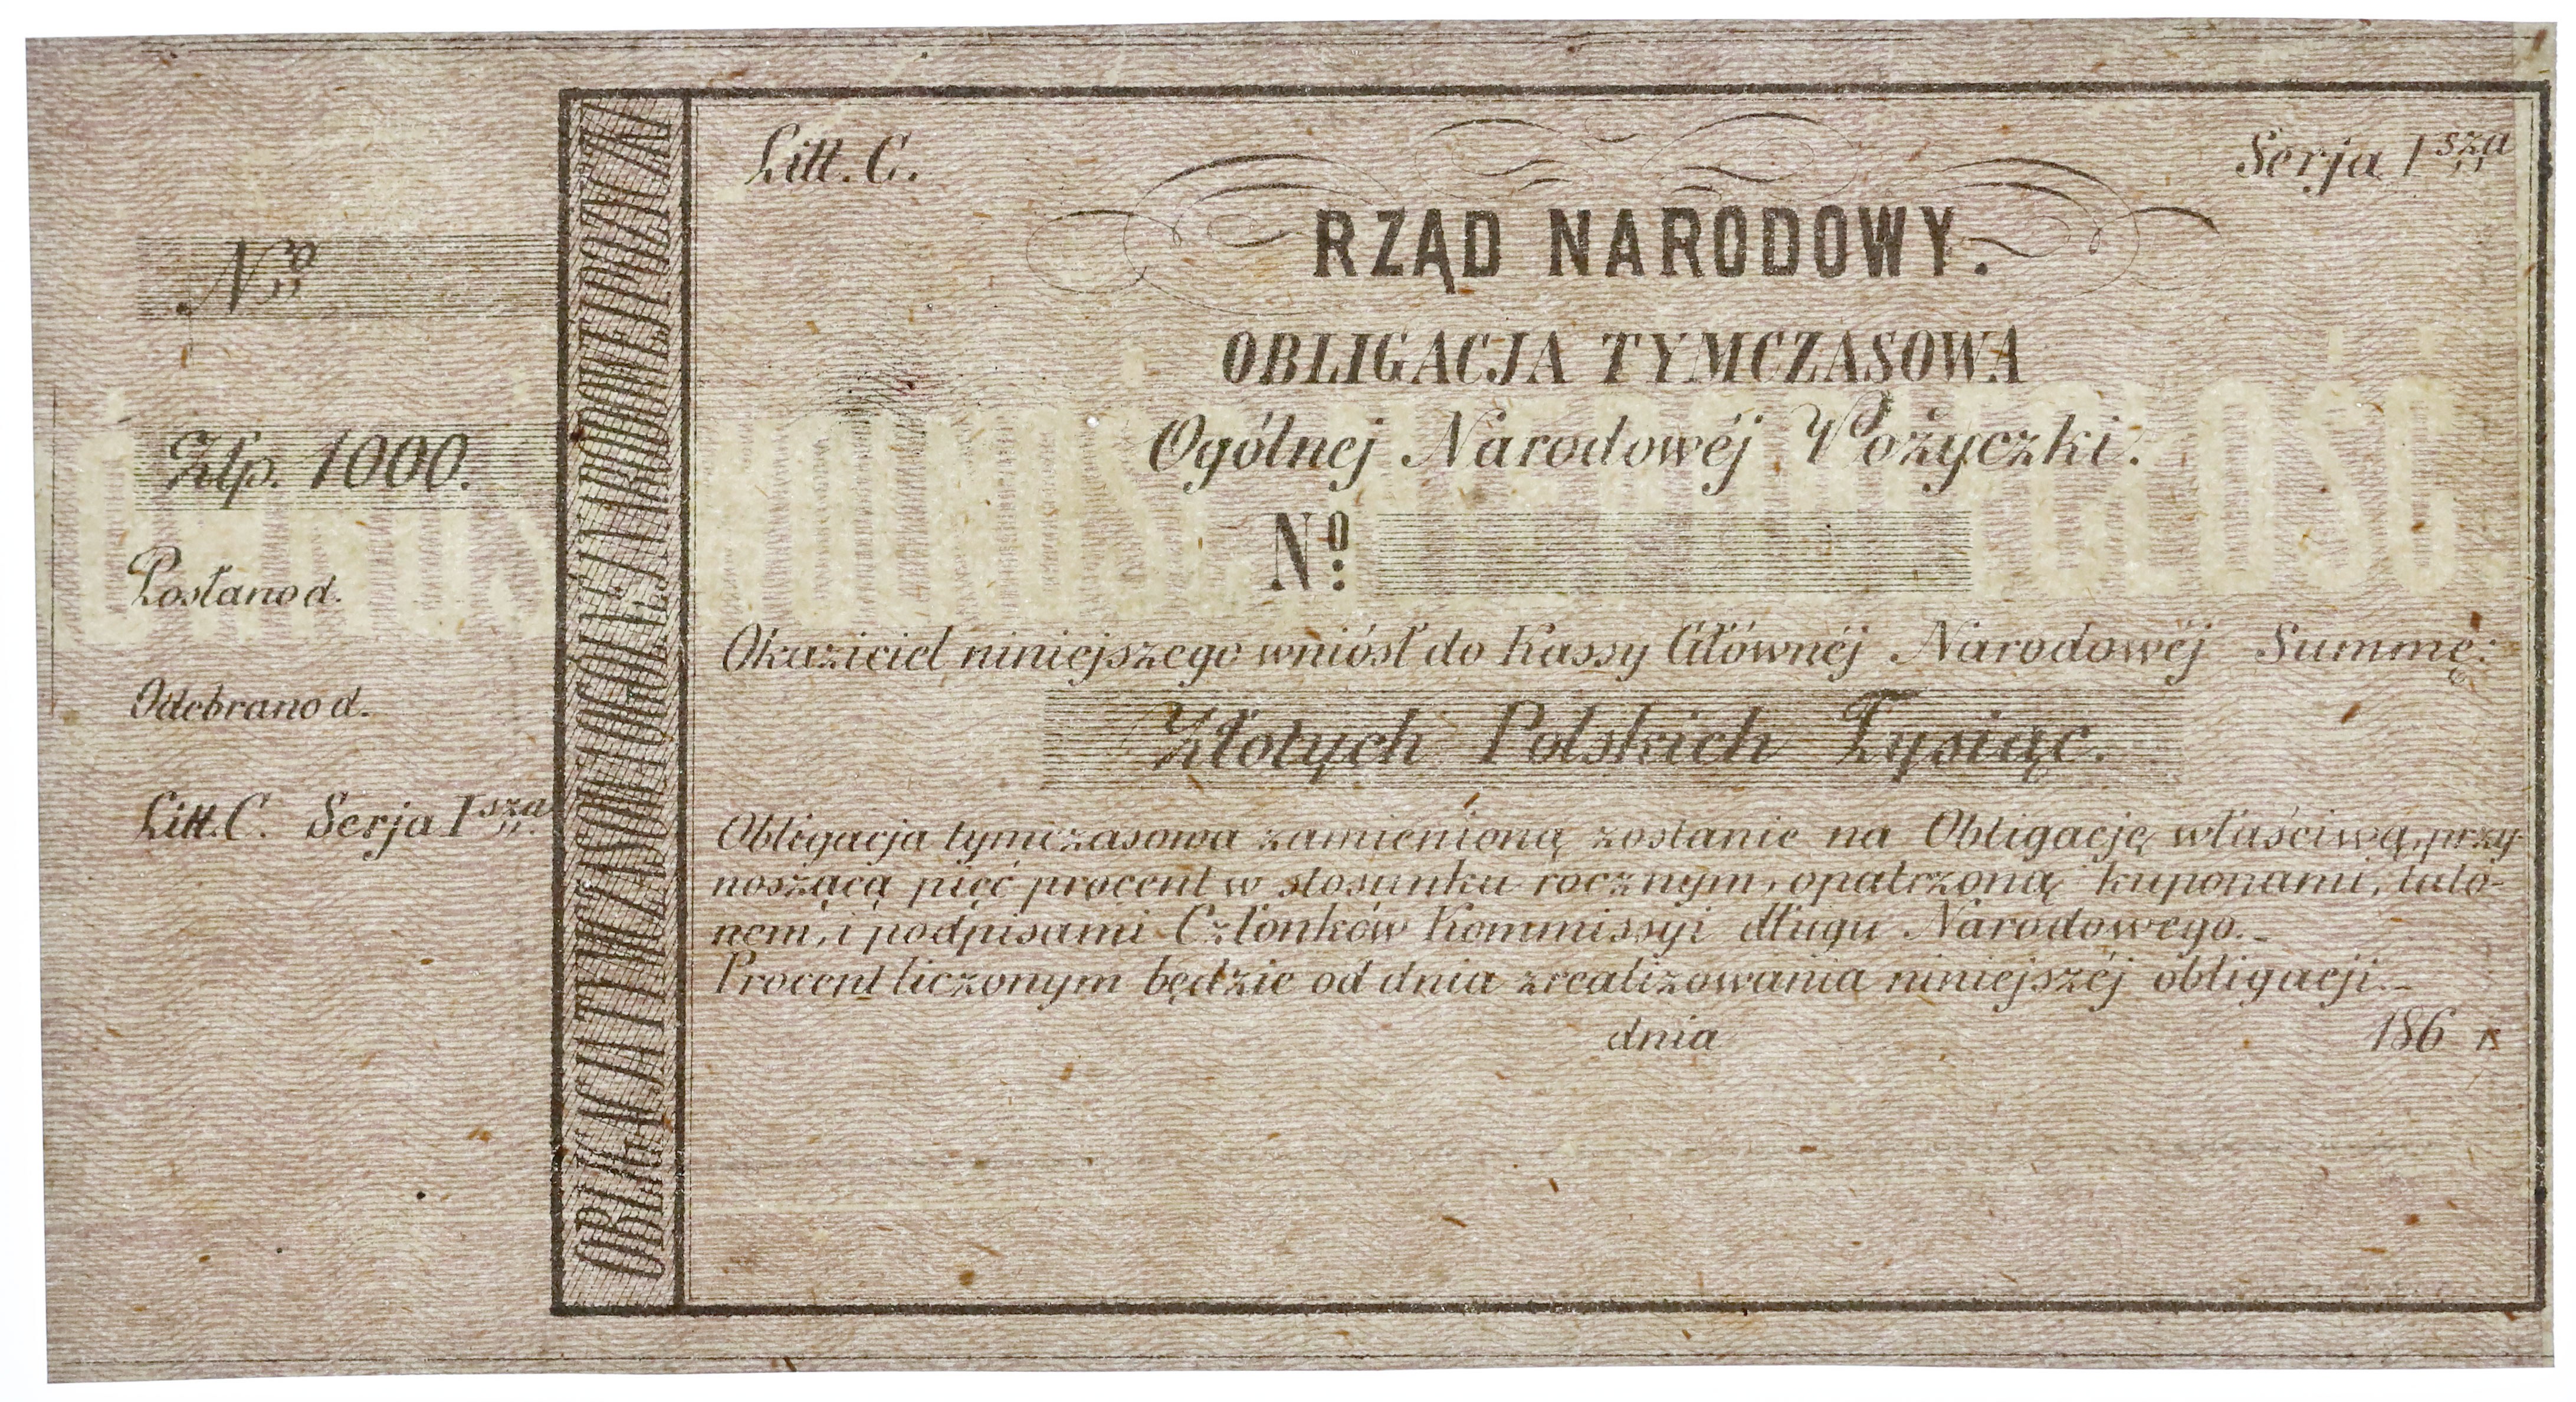 N<sup>ro</sup>
Złp. 1000.
Posłano d.
Odebrano d.
Litt. C. Serja I<sup>sza</sup>
OBLIGACJA TYMCZASOWA OGÓLNEJ NARODOWEJ POŻYCZKI
Litt. C.
Serja I<sup>sza</sup>
RZĄD NARODOWY.
OBLIGACJA TYMCZASOWA
Ogólnej Narodowéj Pożyczki.
Nº
Okaziciel niniejszego wniósł do Kassy Głównéj Narodowéj Summę:
Złotych Polskich Tysiąc.
Obligacja tymczasowa zamienioną zostanie na Obligacje właściwą, przy-
noszącą pięć procent w stosunku rocznym, opatrzoną kuponami, talo-
nem, i podpisami Członków Kommissyi długu Narodowego.
Procent liczonym będzie od dnia zrealizowania niniejszéj obligacji.
dnia 186 r.